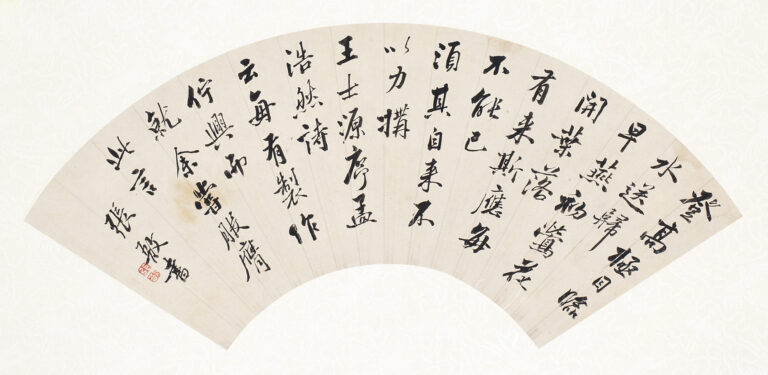 登高極目臨
水送歸
早燕初鶯花
開葉落
有來斯應每
不能已
須其自來不
以力搆
王士源序孟
浩然詩
云每有製作
佇興而
就余嘗服膺
此言
張書